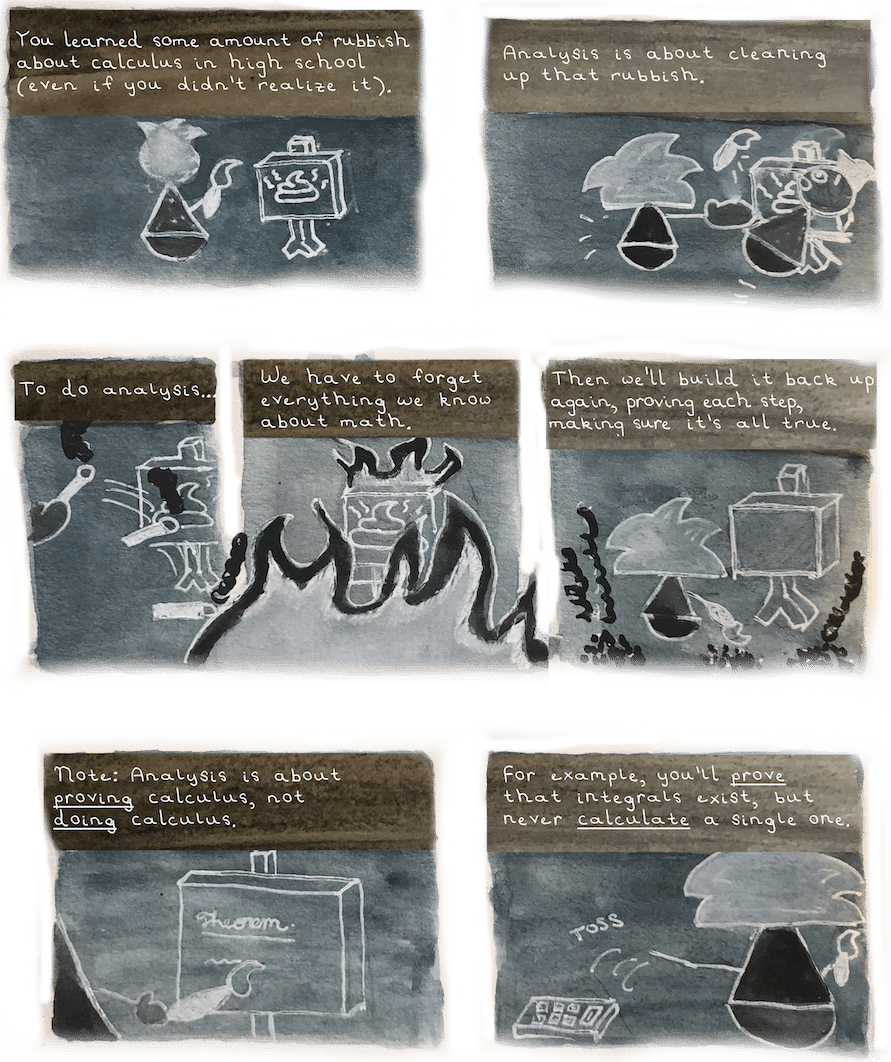 You learned some amount of rubbish
about calculus in high school
(even if you didn't realize it).
Analysis is about cleaning
up that rubbish.
To do analysis...
We have to forget
everything we know
about math.
Then we'll build it back up
again, proving each step,
making sure it's all true.
Note: Analysis is about
proving calculus, not
doing calculus.
Theorem.
For example, you'll prove
that integrals exist, but
never calculate a single one.
TOSS